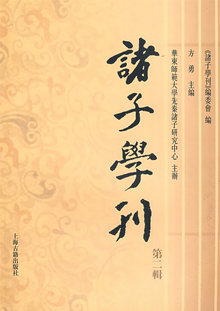 《諸子學刊》編委會 編
方勇 主編
華東師範大學先秦諸子研究中心 主辦
諸子學刊
第二輯
上海古籍出版社